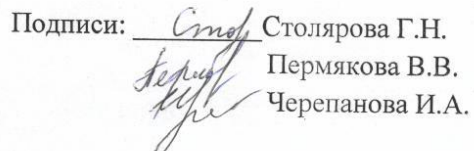 Подписи: Столярова Г.Н.
Пермякова В.В.
Черепанова И.А.